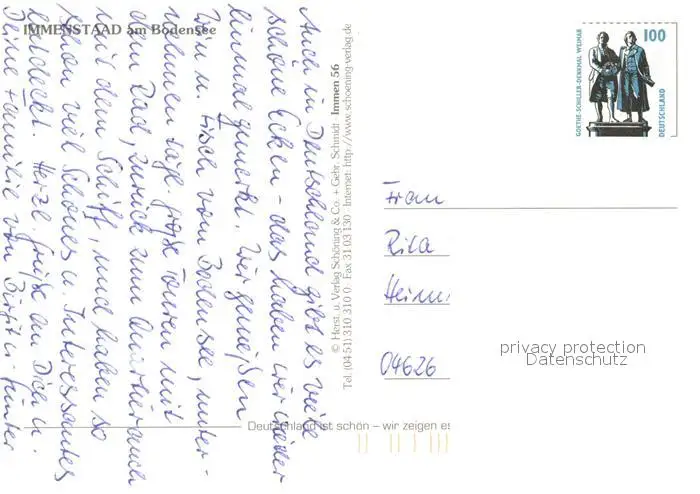 IMMENSTAAD am Bodensee
Auch in Deutschland gibt es viele
schöne Ecken - das haben wir wieder
einmal gemerkt. Wir genießen
Wein u. Fisch vom Bodensee, unter-
nehmen tägl. große Touren mit
dem Rad, zurück zum Quartier auch
mit dem Schiff, und haben so
schon viel Schönes u. Interessantes
entdeckt. Herzl. Grüße an Dich u.
Deine Familie von Birgit u. Günter
© Herst. u. Verlag Schöning & Co. + Gebr. Schmidt Immen 56
Tel. (04 51) 310 310 0 · Fax 31 03 130 · Internet: http://www.schoening-verlag.de
Deutschland ist schön – wir zeigen es
GOETHE-SCHILLER-DENKMAL WEIMAR
100
DEUTSCHLAND
Frau
Rita
04626
privacy protection
Datenschutz